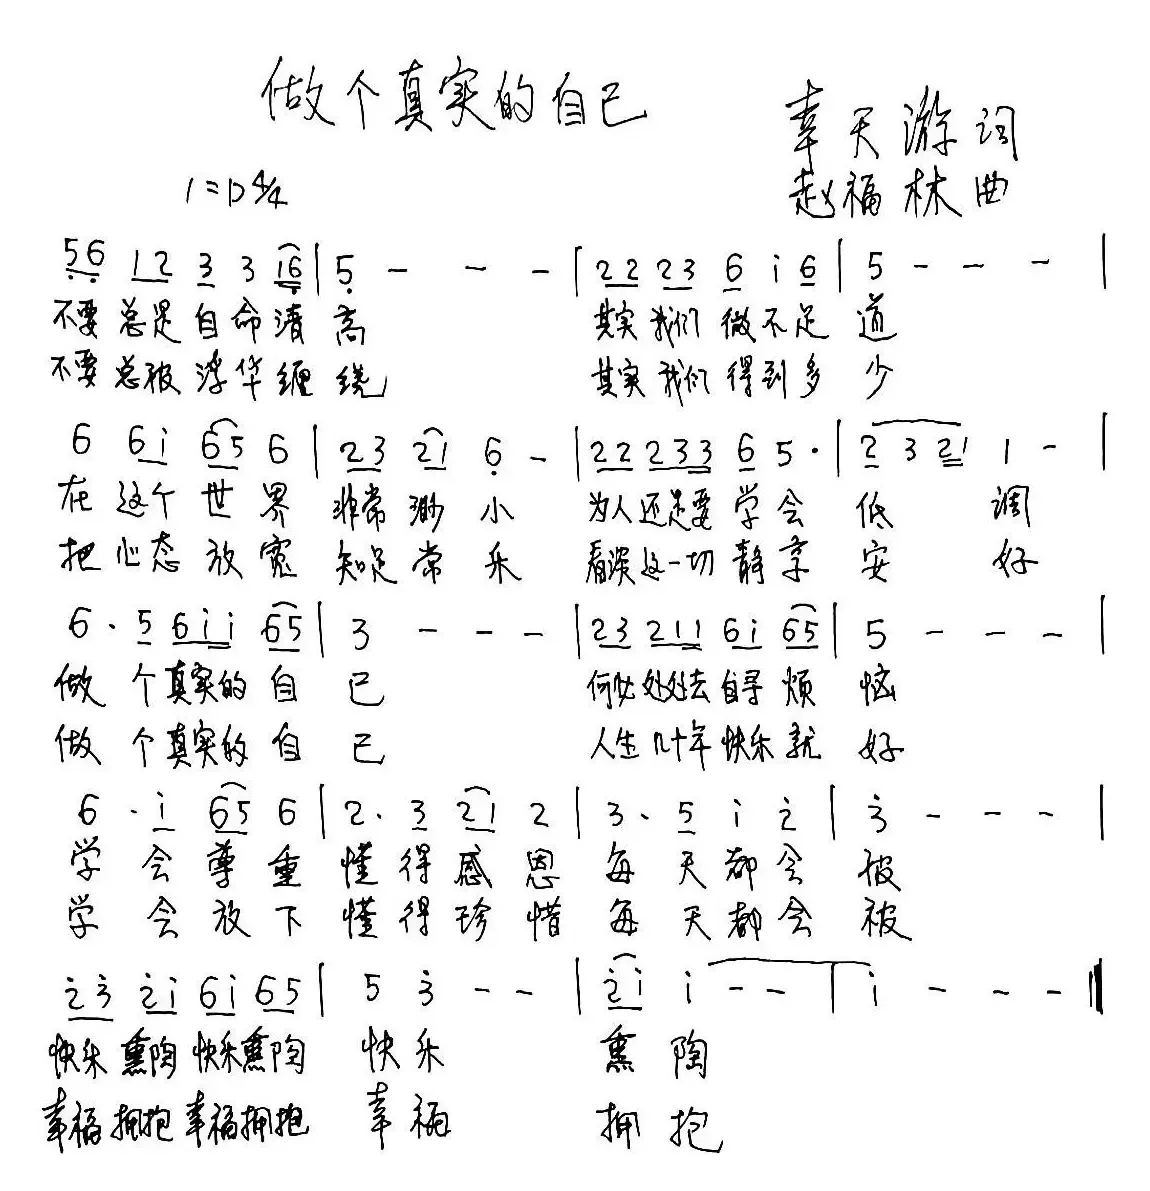 做个真实的自己
幸天游词
赵福林曲
1=D 4/4
56 12 3 3 16 | 5 - - - | 22 23 6 i 6 | 5 - - - |
不要总是自命清高 其实我们微不足道
不要总被浮华缠绕 其实我们得到多少
6 6i 65 6 | 23 21 6 - | 22 233 6 5· | 2 3 21 1 - |
在这个世界 非常渺小 为人还是要学会低调
把心态放宽 知足常乐 看淡这一切静享安好
6· 5 6ii 65 | 3 - - - | 23 211 6i 65 | 5 - - - |
做个真实的自己 何必处处去自寻烦恼
做个真实的自己 人生几十年快乐就好
6· i 65 6 | 2· 3 21 2 | 3· 5 i 2̇ | 3̇ - - - |
学会尊重 懂得感恩 每天都会被
学会放下 懂得珍惜 每天都会被
2̇3̇ 2̇i 6i 65 | 5 3̇ - - | 2̇i i - - | i - - - ‖
快乐熏陶快乐熏陶 快乐 熏陶
幸福拥抱幸福拥抱 幸福 拥抱